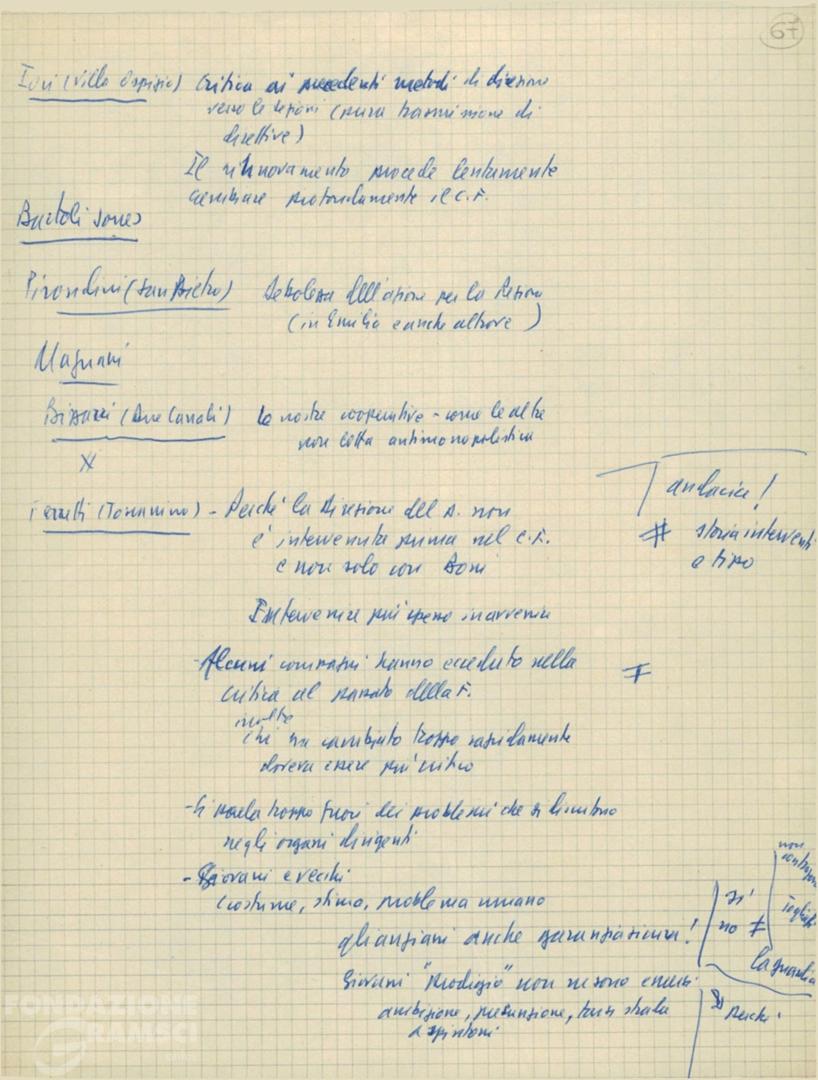 67
Iori (Villa Ospizio) Critica ai precedenti metodi di direzione
verso le sezioni (pura trasmissione di
direttive)
Il rinnovamento procede lentamente
cambiare profondamente il C.F.
Bartoli
Pirondini (San Pietro) Debolezza dell'azione per la Regione
(in Emilia e anche altrove)
Magnani
(Due Canali) Le nostre cooperative - come le altre
non lotta antimonopolistica
X
Ferretti (Tosannino) - Perché la Direzione del P. non
è intervenuta prima nel C.F.
e non solo con Boni
Intervenire più spesso in avvenire
audacia!
≠ storia interventi
e tipo
- Alcuni compagni hanno ecceduto nella
critica al passato della F.
≠
inoltre
chi ha cambiato troppo rapidamente
doveva essere più critico
- Si parla troppo fuori dei problemi che si discutono
negli organi dirigenti
- Giovani e vecchi
Costume, stima, problema umano
gli anziani anche garanzia sicura!
sì
no ≠
non
Togliatti
la guardia
Giovani "prodigio" non possono esserci
ambizione, presunzione, farsi strada
a spintoni
Perché
FONDAZIONE
GRAMSCI